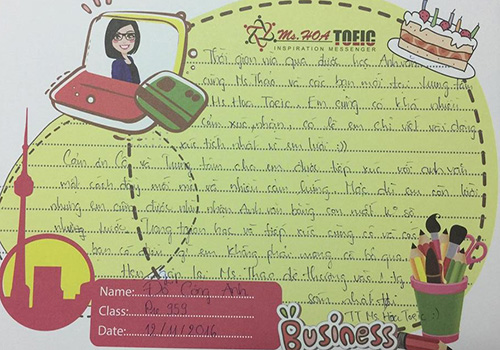 Ms. HOA TOEIC
INSPIRATION MESSENGER
Thời gian vừa qua được học Anh văn
cùng Ms Thảo và các bạn mới đến trung tâm
Ms Hoa Toeic. Em cũng có khá nhiều
cảm xúc, nhận, có lẽ em chỉ viết vài dòng
xúc tích nhất vì em lười :))
Cảm ơn Cô và Trung tâm cho em được tiếp xúc với anh văn
một cách đầy mới mẻ và nhiều cảm hứng. Mặc dù em còn lười
nhưng em cũng được nhìn nhận Anh văn bằng con mắt khác
những trước. Trong tgian học và tiếp xúc cùng cô và các
bạn có điều gì em không phải mong cô bỏ qua.
Hẹn gặp lại Ms Thảo dễ thương vào 1 ng
sớm nhất
TT Ms Hoa Toeic :)
Name: Đỗ Công Anh
Class: Pre 359
Date: 12/11/2016
Business